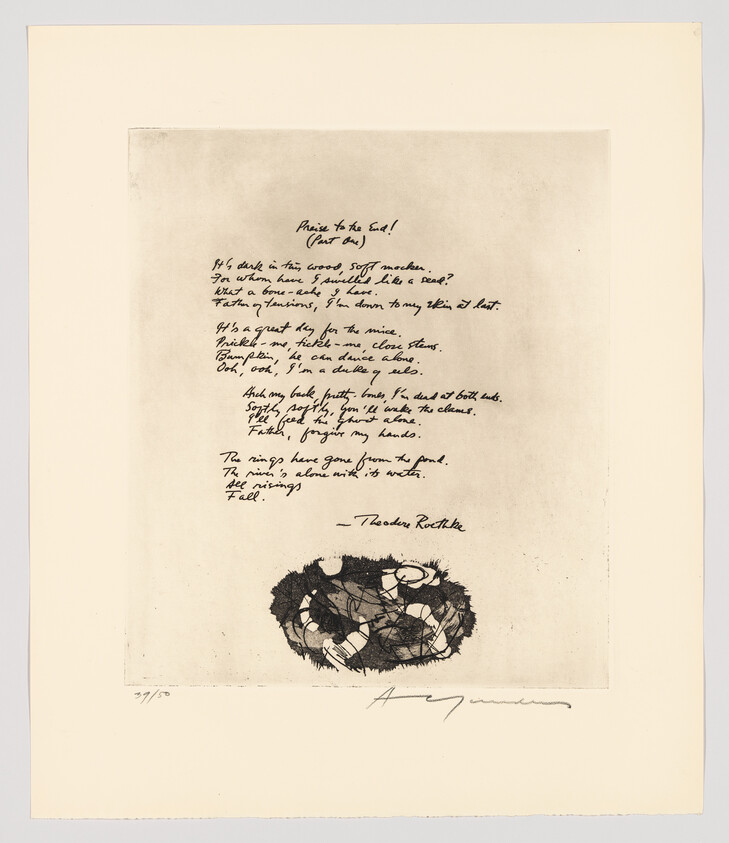 Praise to the End!
(Part One)
It's dark in this wood, soft mocker.
For whom have I swelled like a seed?
What a bone-ache I have.
Father of tensions, I'm down to my skin at last.
It's a great day for the mice.
Prickle-me, tickle-me, close stems.
Bumpkin, he can dance alone.
Ooh, ooh, I'm a duke of eels.
Arch my back, pretty-bones, I'm dead at both ends.
Softly, softly, you'll wake the clams.
I'll feed the ghost alone.
Father, forgive my hands.
The rings have gone from the pond.
The river's alone with its water.
All risings
Fall.
— Theodore Roethke
39/50